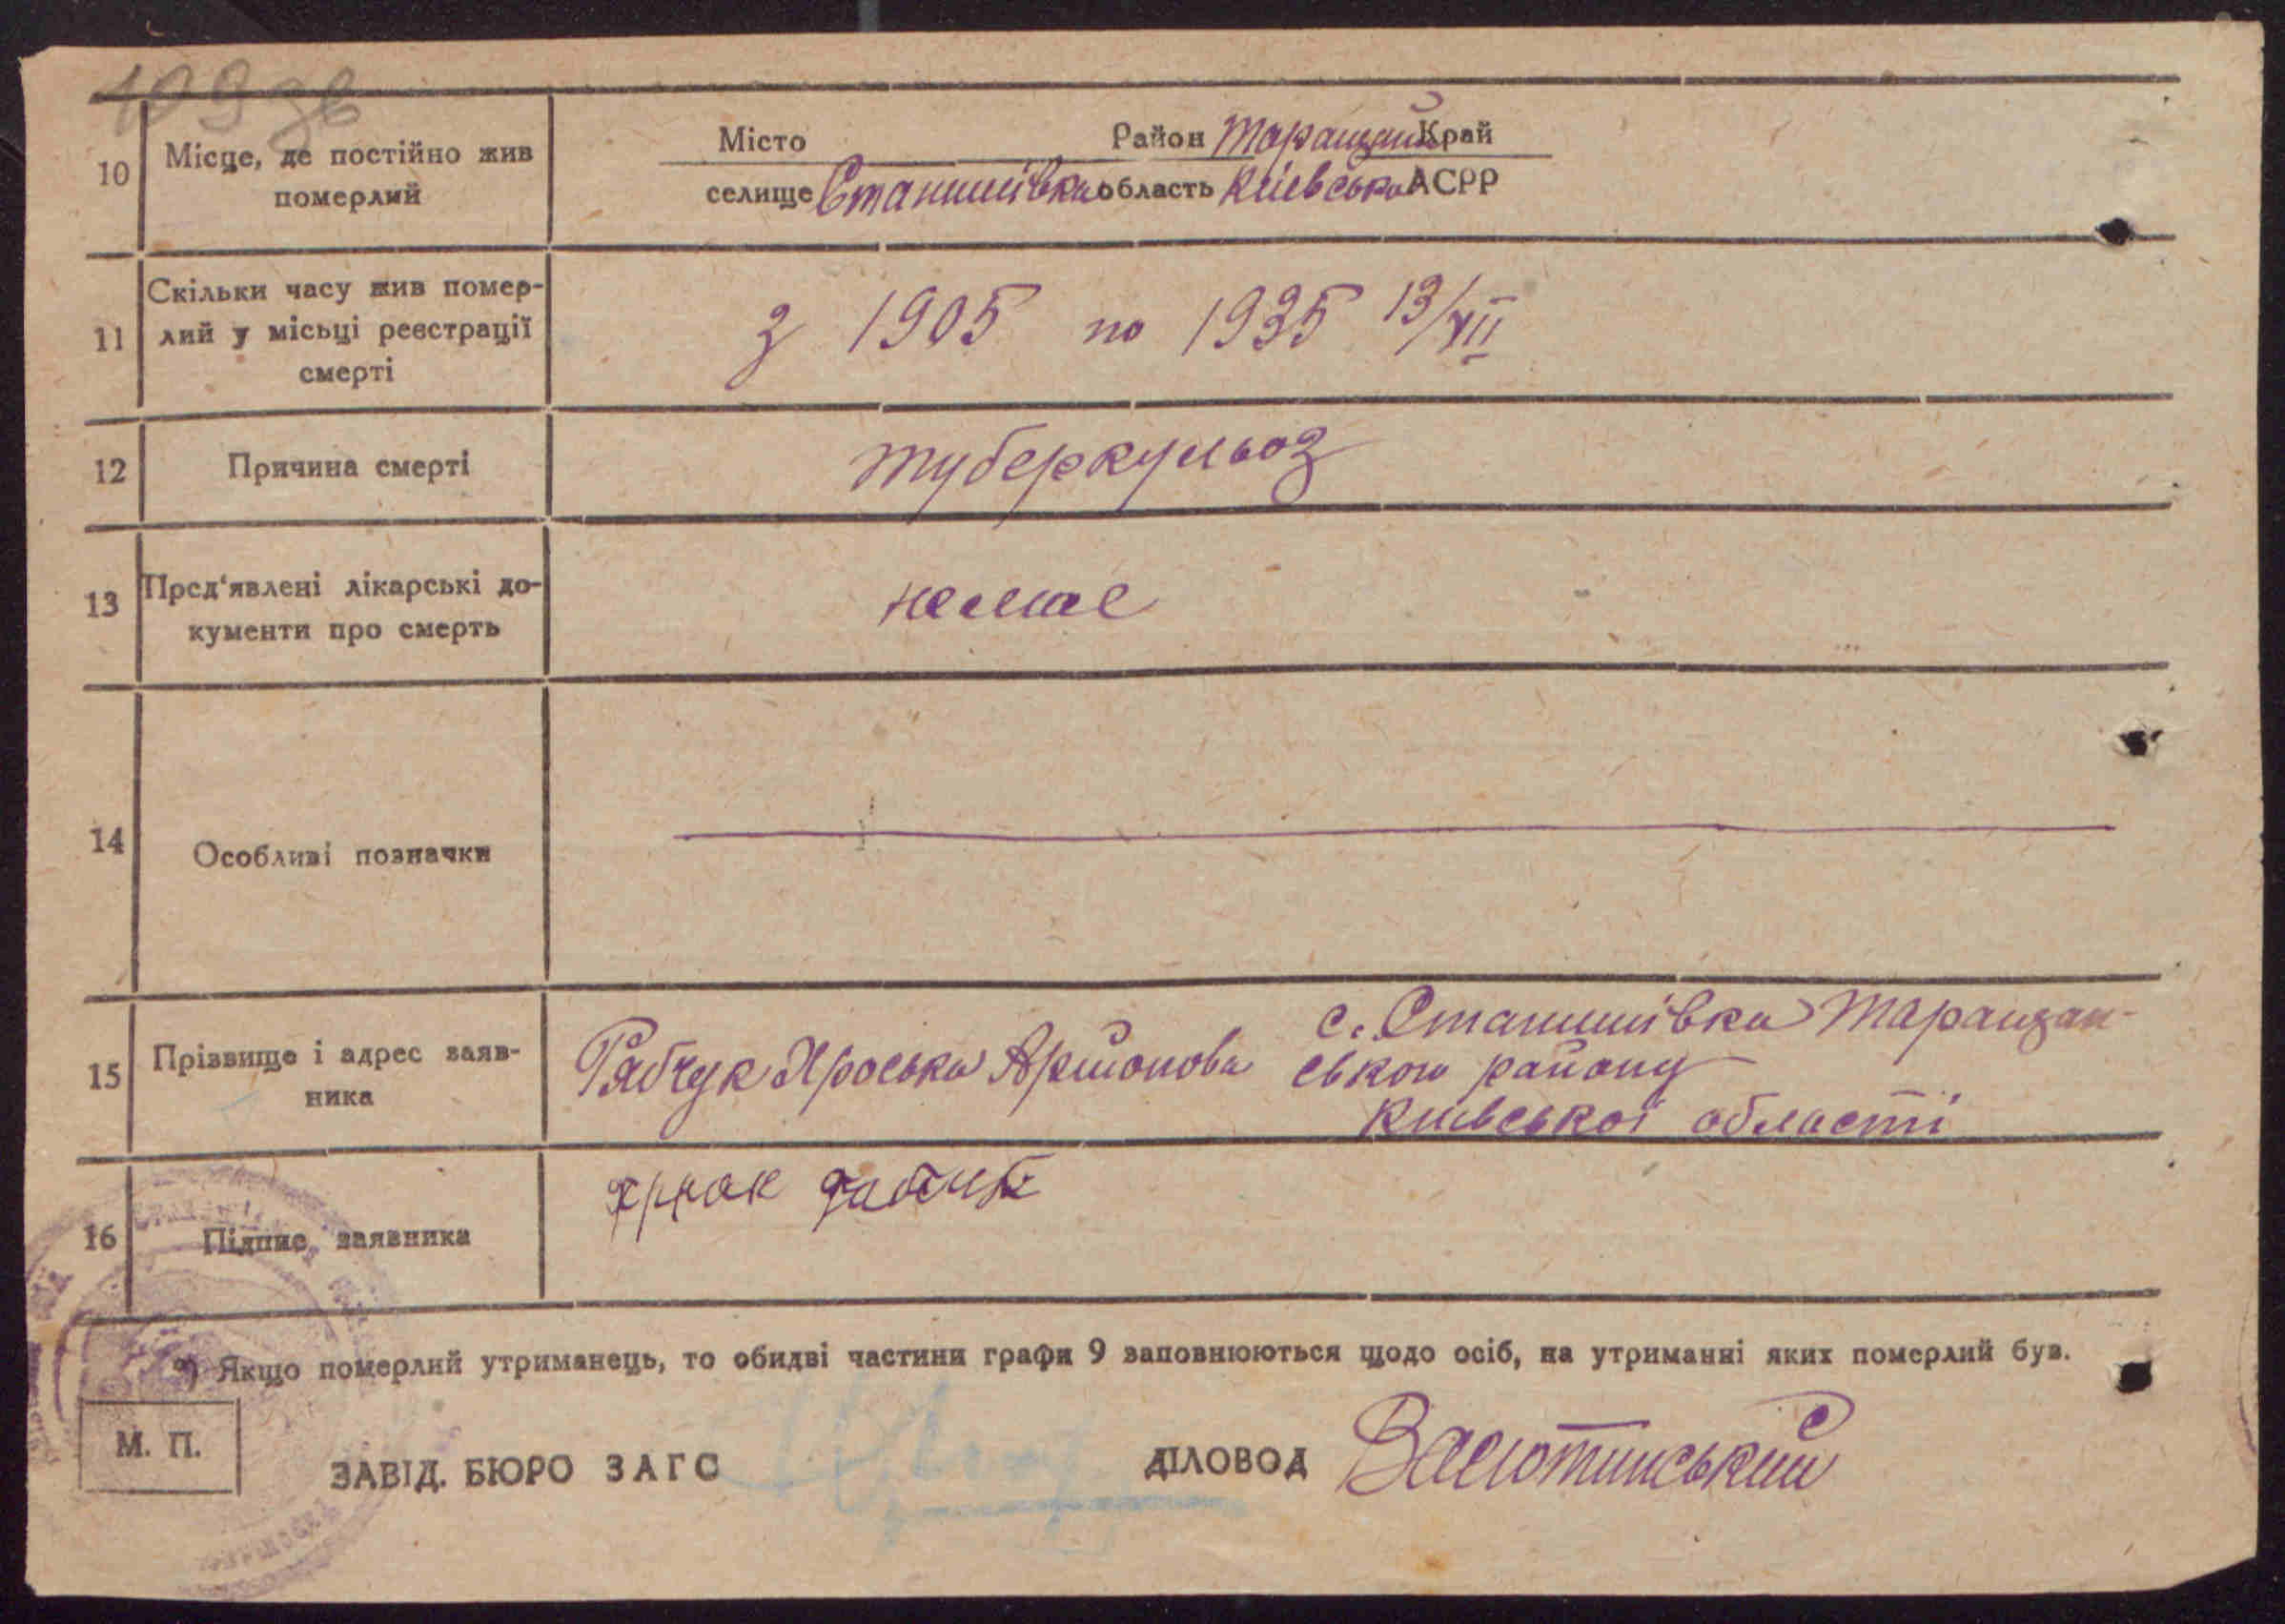 109 зв
10 Місце, де постійно жив померлий
Місто Район Таращан. Край
селище Станишівка область Київська АСРР
11 Скільки часу жив помер-
лий у місьці реєстрації
смерті
з 1905 по 1935 13/VII
12 Причина смерті туберкульоз
13 Пред'явлені лікарські до-
кументи про смерть
немає
14 Особливі позначки
15 Прізвище і адрес заяв-
ника
Рябчук Яроська
с. Станишівка Таращан-
ського району
Київської області
16 Підпис заявника
*) Якщо померлий утриманець, то обидві частини графи 9 заповнюються щодо осіб, на утриманні яких померлий був.
М. П.
ЗАВІД. БЮРО ЗАГС
ДІЛОВОД Васютинський